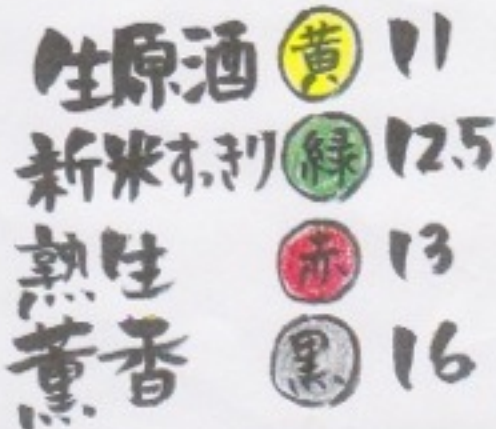 生原酒 黄 11
新米すっきり 緑 12.5
熟生 赤 13
薫香 黒 16